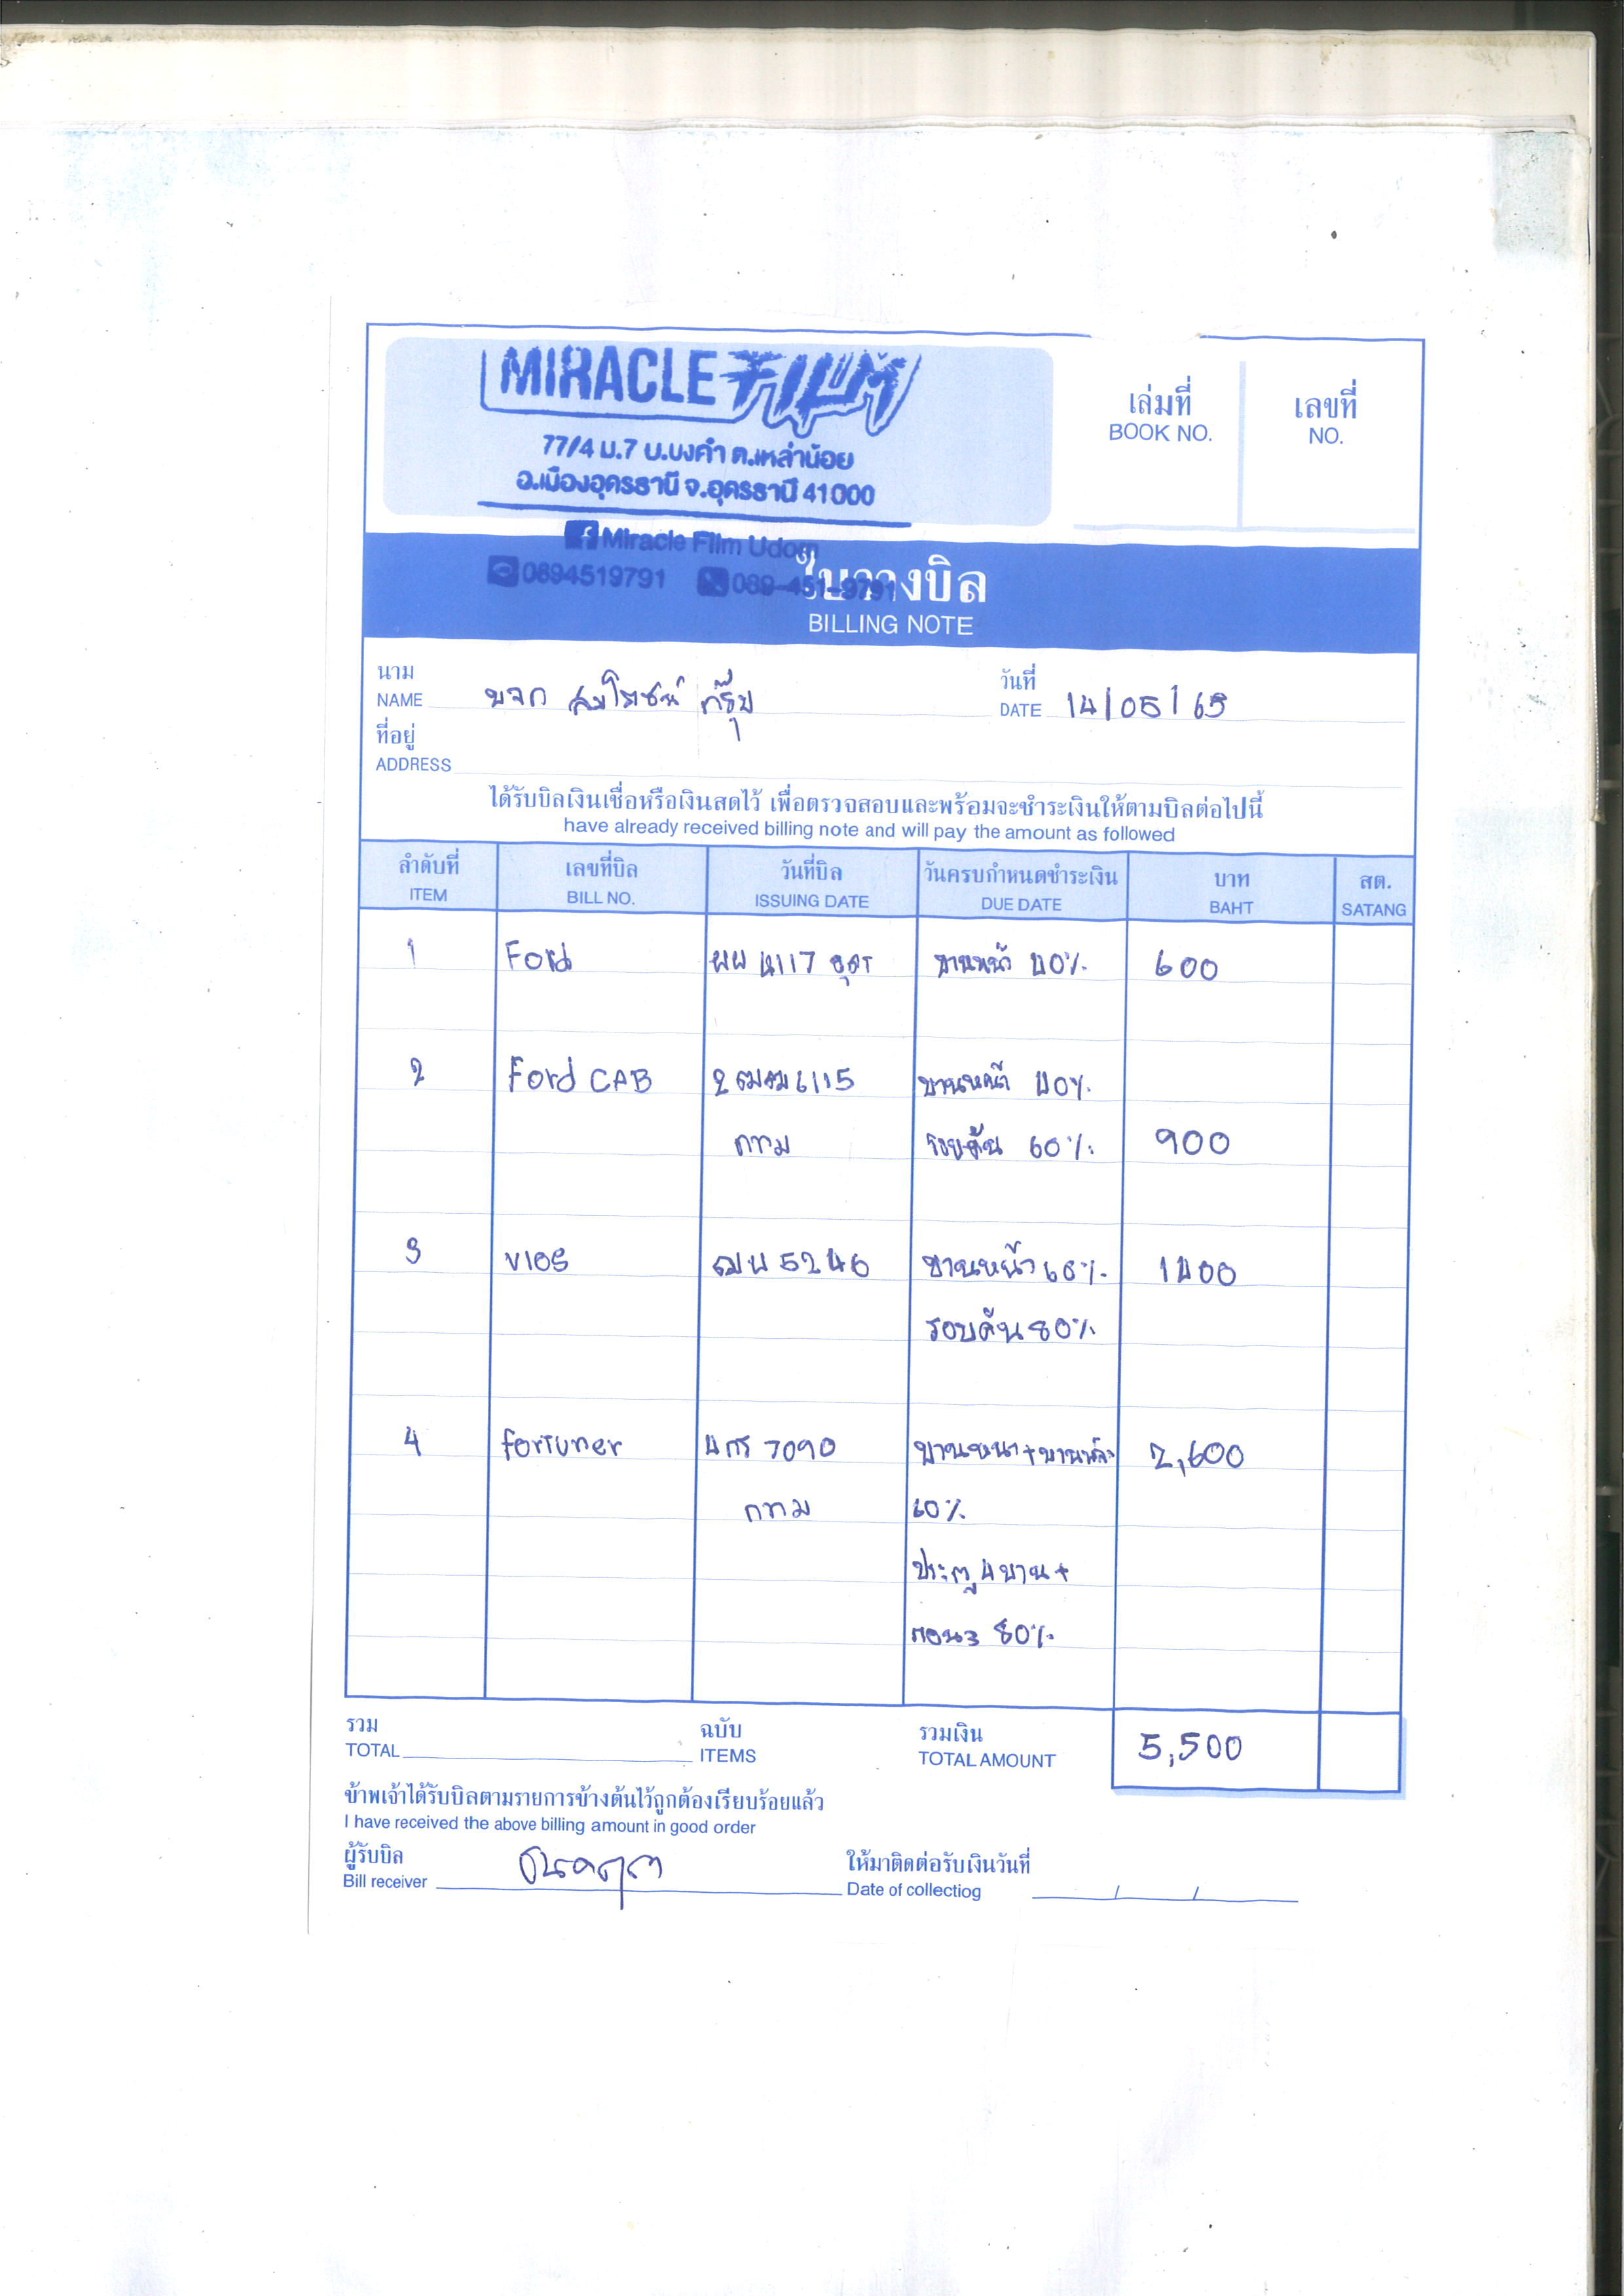 MIRACLE FILM
77/4 ม.7 บ.บงคำ ต.เหล่าน้อย
อ.เมืองอุดรธานี จ.อุดรธานี 41000
Miracle Film Udorn
0894519791 089-451-9791
เล่มที่ เลขที่
BOOK NO. NO.
ใบวางบิล
BILLING NOTE
นาม วันที่
NAME บจก สมโตชน์ กรุ๊ป DATE 14/05/65
ที่อยู่
ADDRESS
ได้รับบิลเงินเชื่อหรือเงินสดไว้ เพื่อตรวจสอบและพร้อมจะชำระเงินให้ตามบิลต่อไปนี้
have already received billing note and will pay the amount as followed
ลำดับที่ เลขที่บิล วันที่บิล วันครบกำหนดชำระเงิน บาท สต.
ITEM BILL NO. ISSUING DATE DUE DATE BAHT SATANG
1 Ford ผผ 4117 อุดร บานหน้า 40% 600
2 Ford CAB 2 ฒฌ 6115 บานหน้า 40%
กทม รอบคัน 60% 900
3 VIOS ฌฬ 5246 บานหน้า 60% 1400
รอบคัน 80%
4 fortuner 4 กร 7090 บานหนา + บานหลัง 2,600
กทม 60%
ประตู 4 บาน +
ตอน3 80%
รวม ฉบับ รวมเงิน
TOTAL ITEMS TOTAL AMOUNT 5,500
ข้าพเจ้าได้รับบิลตามรายการข้างต้นไว้ถูกต้องเรียบร้อยแล้ว
I have received the above billing amount in good order
ผู้รับบิล ให้มาติดต่อรับเงินวันที่
Bill receiver Date of collectiog / /